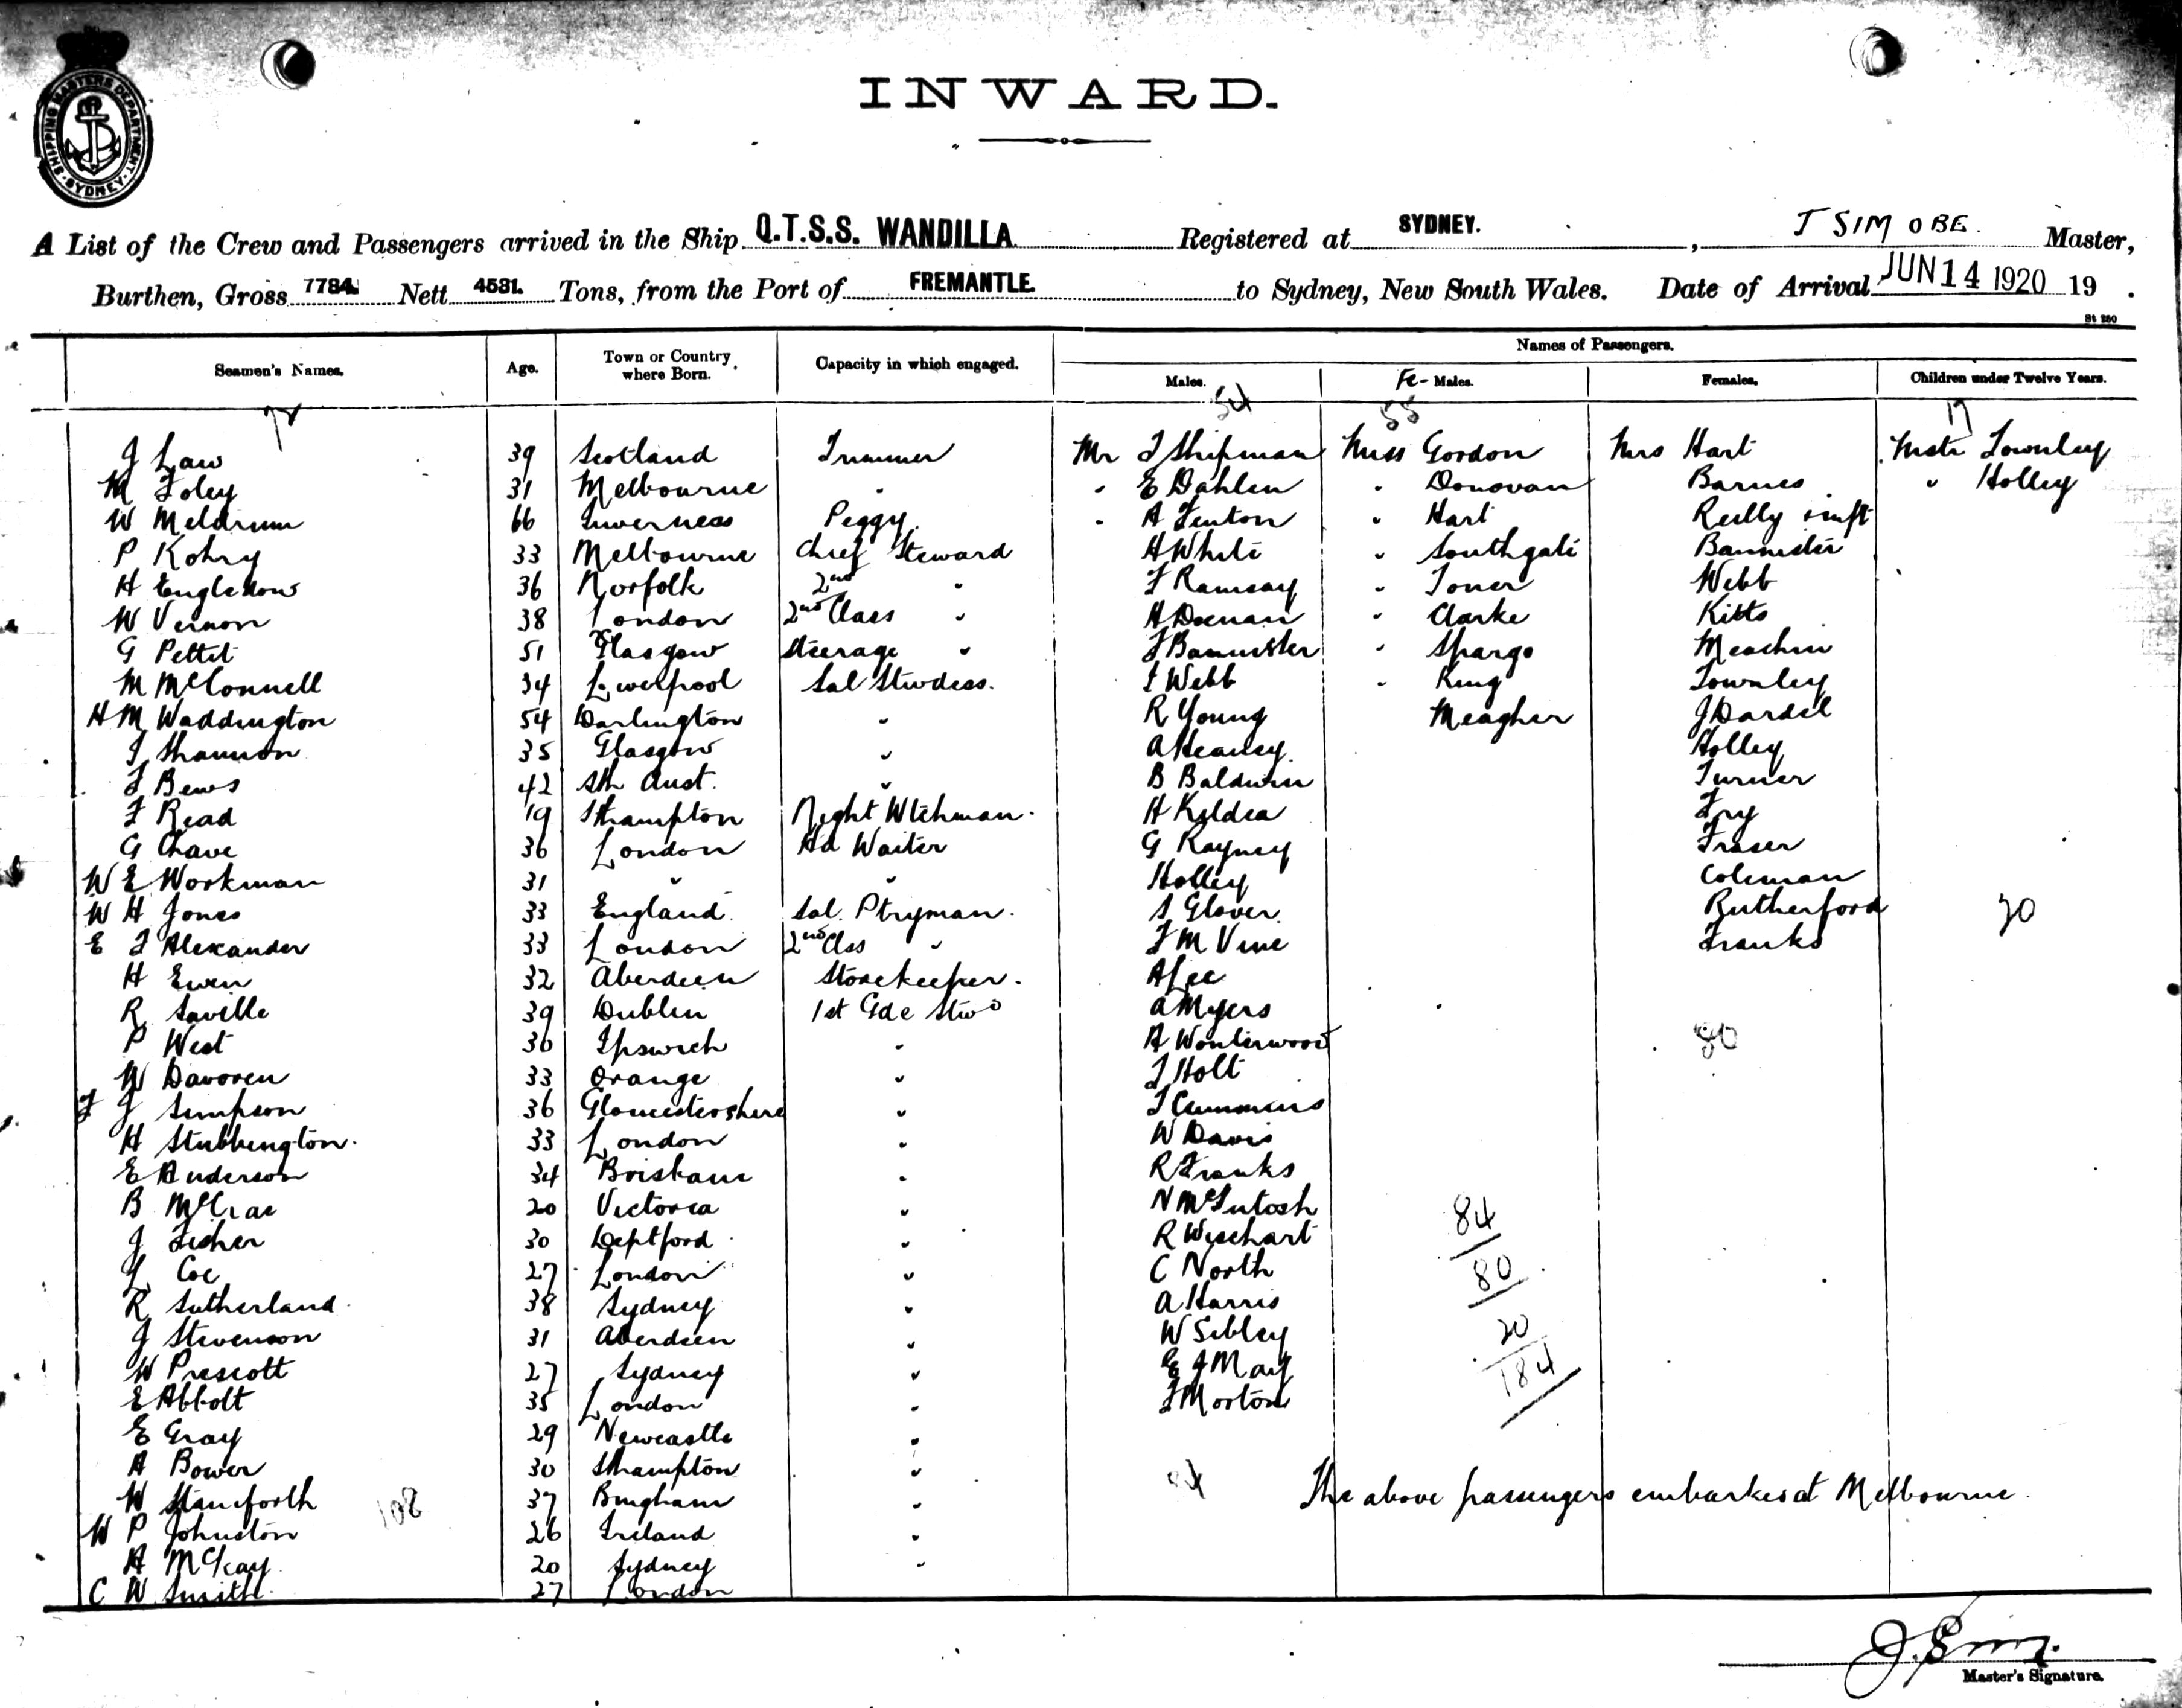 SHIPPING MASTERS DEPARTMENT
SYDNEY
INWARD.
A List of the Crew and Passengers arrived in the Ship Q.T.S.S. WANDILLA Registered at SYDNEY. , J SIM OBE. Master,
Burthen, Gross 7784. Nett 4531. Tons, from the Port of FREMANTLE. to Sydney, New South Wales. Date of Arrival JUN 14 1920 19 .
St 250
Seamen's Names. Age. Town or Country where Born. Capacity in which engaged. Names of Passengers.
Males. Fe- Males. Females. Children under Twelve Years.
54 55 17
J Law 39 Scotland Trimmer Mr J Shipman Miss Gordon Mrs Hart Mstr Townley
M Foley 31 Melbourne " " E Dahlen " Donovan Barnes " Holley
W Meldrum 66 Inverness Peggy " A Fenton " Hart Reilly & inft
P Kohry 33 Melbourne Chief Steward H White " Southgate Bannister
H Engledow 36 Norfolk 2nd " F Ramsay " Toner Webb
W Vernon 38 London 2nd Class " H Doenan " Clarke Kitts
G Pettit 51 Glasgow Steerage " J Bannister " Spargo Meachin
M McConnell 34 Liverpool Sal Stwdess. J Webb " King Townley
H M Waddington 54 Darlington " R Young Meagher J Dardel
J Shannon 35 Glasgow " A Heaney Holley
J Bews 42 Sth Aust. " B Baldwin Turner
F Read 19 Sthampton Night Wtchman. H Kildea Fry
G Chave 36 London Hd Waiter G Rayney Fraser
W E Workman 31 " " Holley Coleman
W H Jones 33 England. Sal. Ptryman. S Glover Rutherford 20
E J Alexander 33 London 2nd Clss " F M Vine Franks
H Ewen 32 Aberdeen Storekeeper. A Lee
R Saville 39 Dublin 1st Gde Stwd A Myers
P West 36 Ipswich " A Wonterwood 80
W Davoren 33 Orange " J Holt
F J Simpson 36 Gloucestershire " J Cummins
H Stubbington. 33 London " W Davis
E Anderson 34 Brisbane " R Franks
B McCrae 20 Victoria " N McIntosh 84
J Fisher 30 Deptford " R Wischart
L Coe 27 London " C North 80
R Sutherland 38 Sydney " A Harris
J Stevenson 31 Aberdeen " W Sibley 20
W Prescott 27 Sydney " E J May 184
E Abbott 35 London " J Morton
E Gray 29 Newcastle "
A Bower 30 Sthampton "
W Staniforth 108 37 Bingham " 84 The above passengers embarked at Melbourne.
W P Johnston 26 Ireland "
A McKay 20 Sydney "
C W Smith 27 London
J. Sim.
Master's Signature.